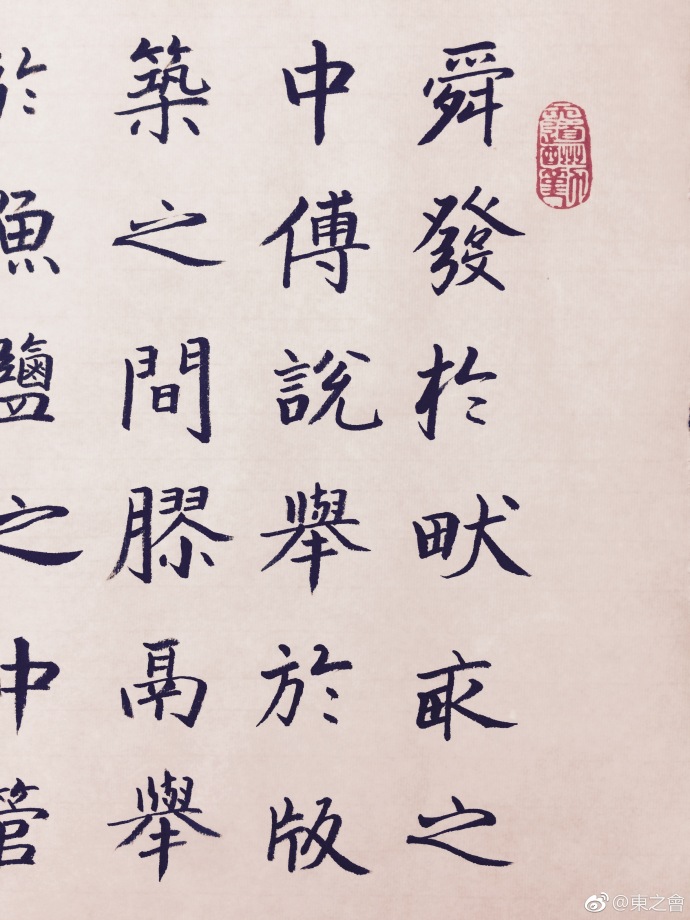 舜發於畎畝之
中傅說舉於版
築之間膠鬲舉
於魚鹽之中管
@東之會